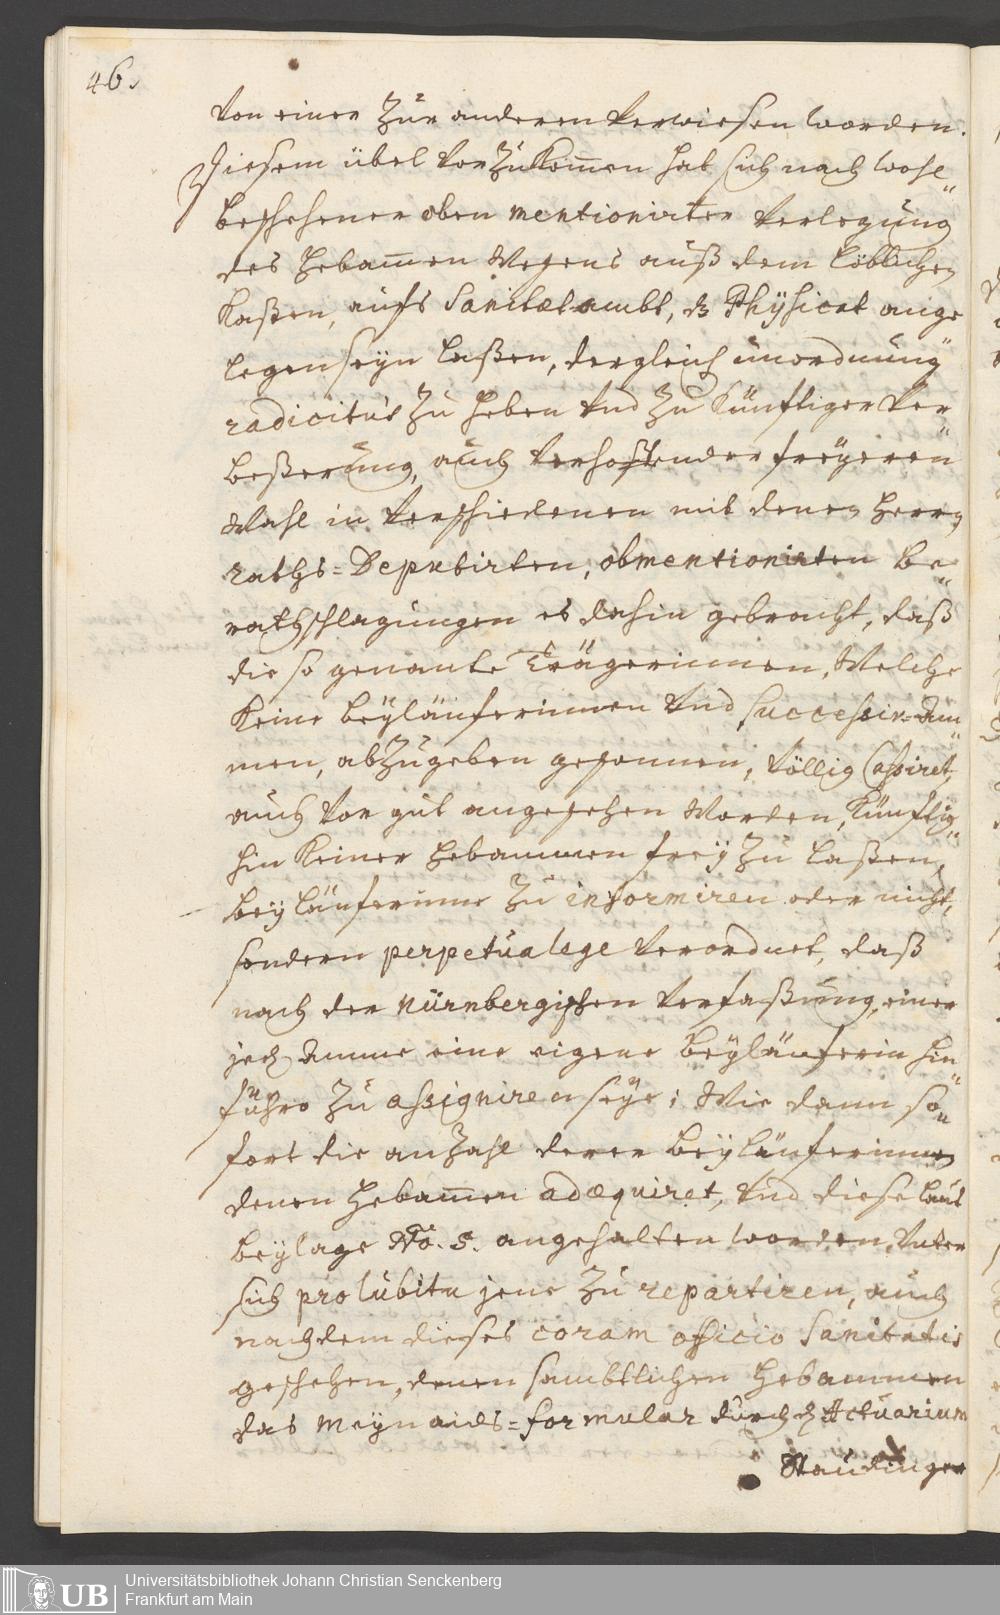 46.
von einer zur anderen verwiesen worden.
Diesem übel vorzukom̄en hat sich nach wohl„
beschehener oben mentionirter verlegung
des Hebam̄en Wesens auß dem löblichen
Kasten, aufs Sanitætambt, & Physicat ange„
legen seyn laßen, dergleich unordnung
radicitùs zu heben und zu künftiger ver„
beßerung, auch verhoffender freyeren
Wahl in verschiedenen mit denen Herrn
raths=Deputirten, obmentionirten be„
rathschlagungen es dahin gebracht, daß
die so genante Trägerinnen, Welche
Keine beyläuferinnen und successive Am„
men, abzugeben gesonnen, völlig Cassiret,
auch vor gut angesehen Worden, künftig„
hin Keiner Hebammen frey zu laßen,
beyläuferinne zu informiren oder nicht,
sondern perpetua lege verordnet, daß
nach der Nürnbergischen verfaßung, einer
jed Amme eine eigene beyläuferin hin„
führo zu assigniren seye; Wie dann so„
fort die anzahl derer beyläuferinnen
denen Hebam̄en adæquiret, und diese laut
beylage No. 5. angehalten worden, unter
sich pro lubitu jene zu repartiren, auch
nachdem dieses coram officio Sanitatis
geschehen, denen sambtlichen Hebammen
das Meynaids=formular durch d Actuarium
Staudinger
Universitätsbibliothek Johann Christian Senckenberg
Frankfurt am Main
UB